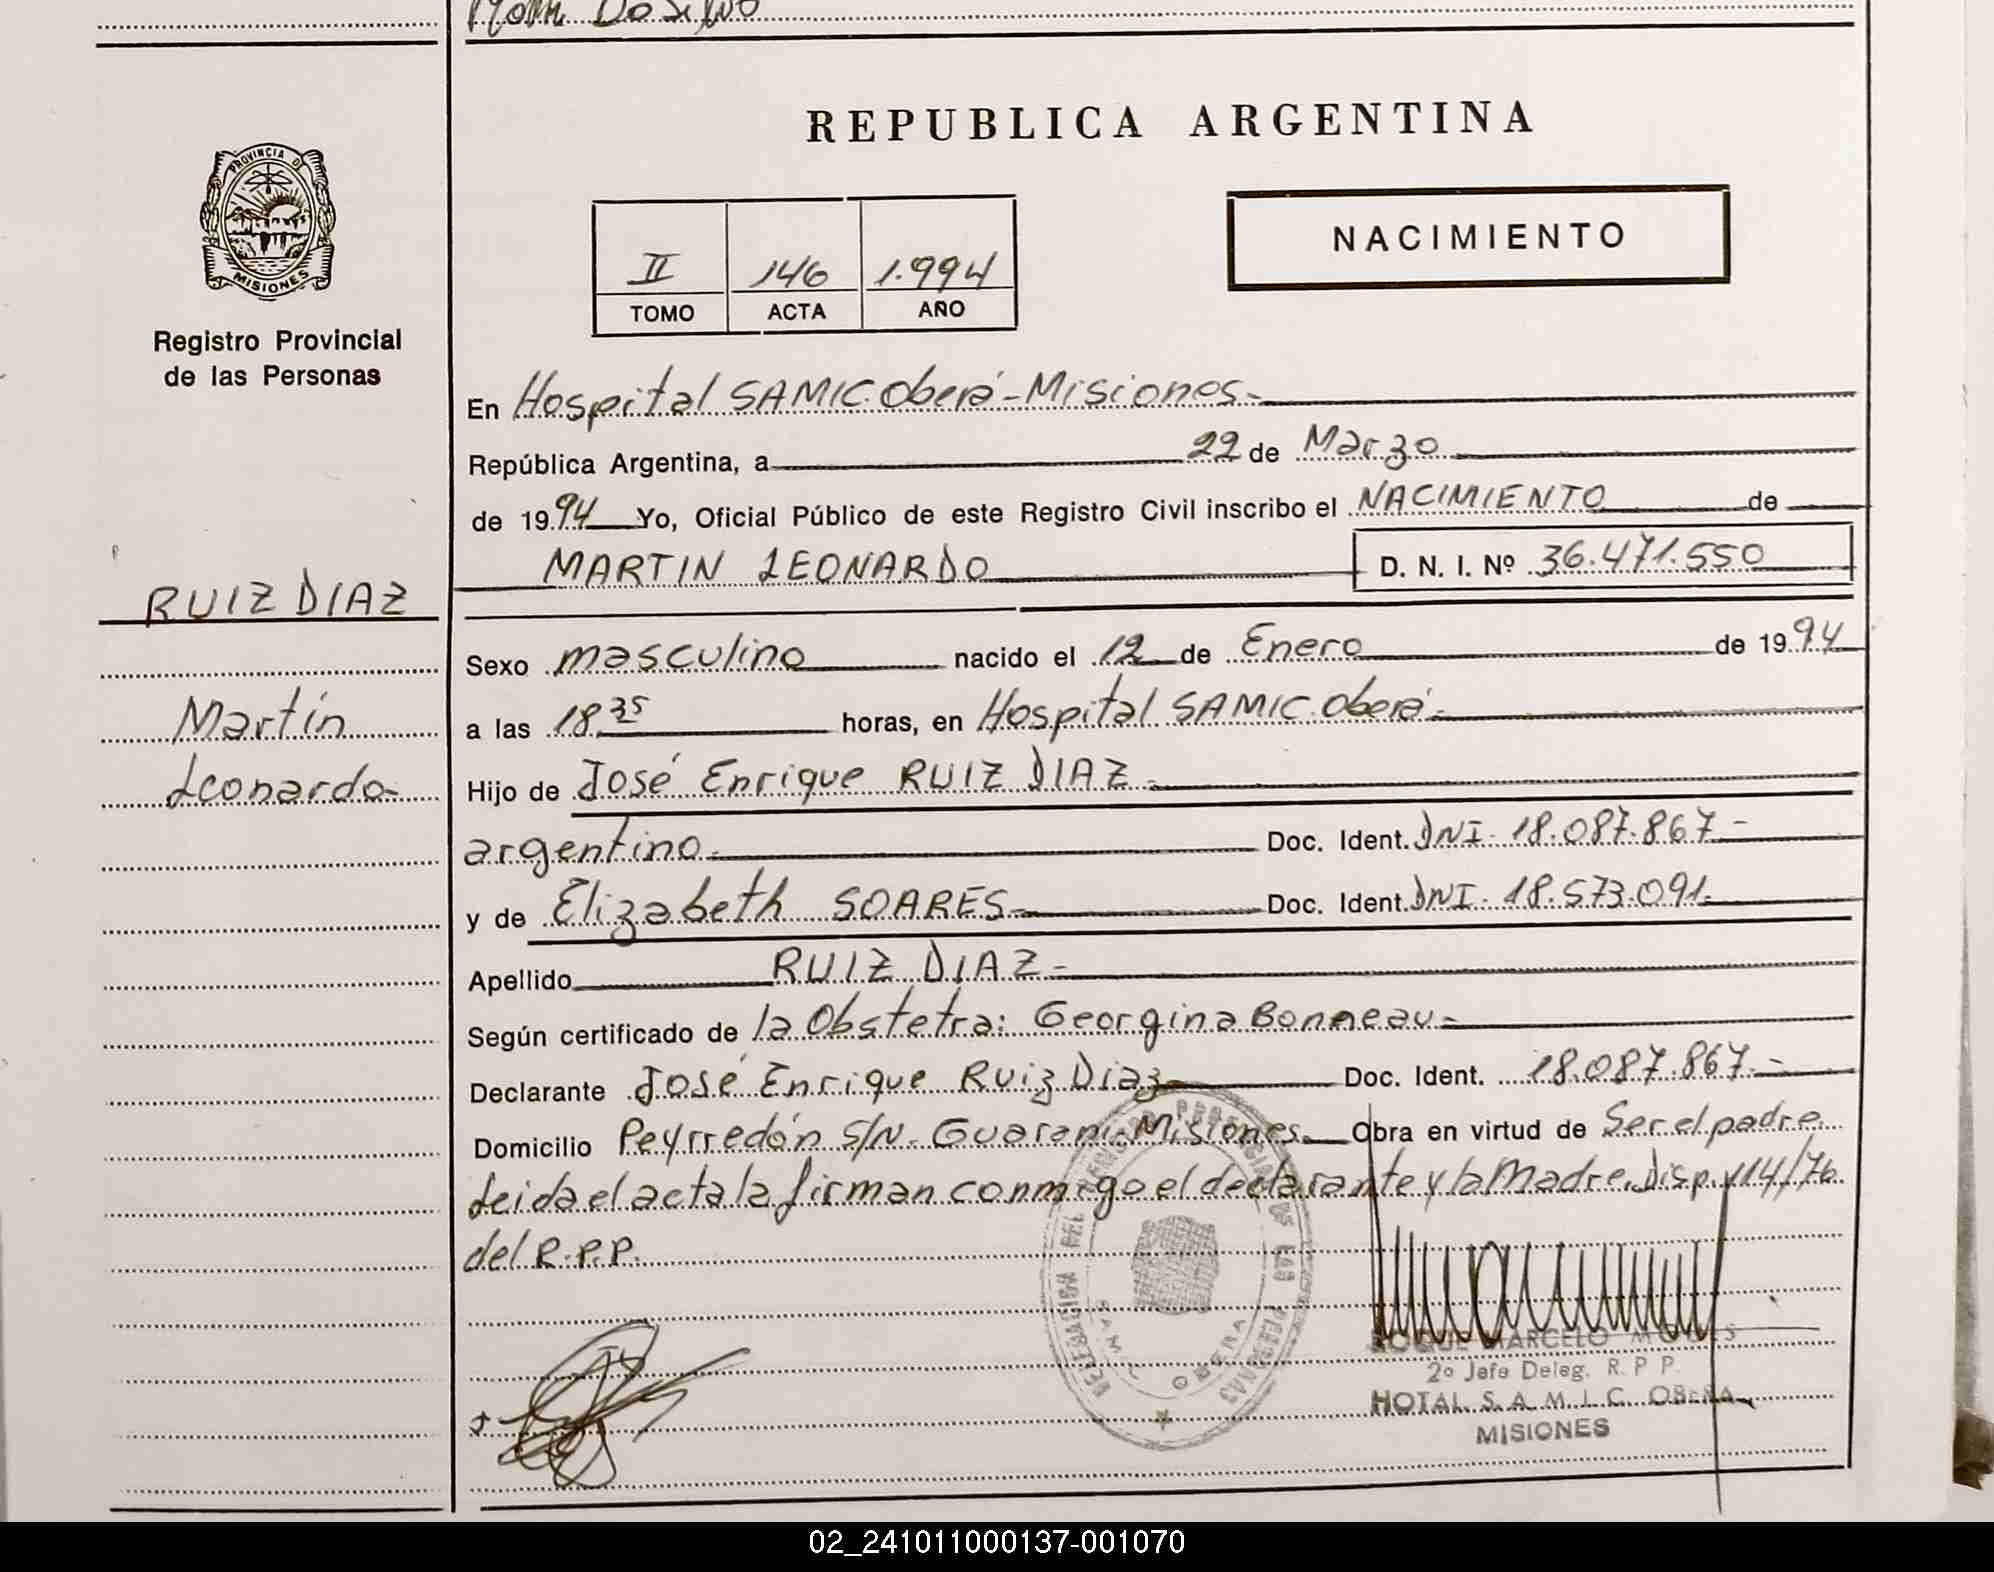 REPUBLICA ARGENTINA
PROVINCIA DE
MISIONES
Registro Provincial
de las Personas
II 146 1.994
TOMO ACTA AÑO
NACIMIENTO
En Hospital SAMIC. Oberá - Misiones.-
República Argentina, a 22 de Marzo
de 1994 Yo, Oficial Público de este Registro Civil inscribo el NACIMIENTO de
MARTIN LEONARDO D. N. I. Nº 36.471.550
RUIZ DIAZ
Martín
Leonardo-
Sexo masculino nacido el 12 de Enero de 1994
a las 18 35 horas, en Hospital SAMIC. Oberá.-
Hijo de José Enrique RUIZ DIAZ.-
argentino.- Doc. Ident. DNI. 18.087.867.-
y de Elizabeth SOARES.- Doc. Ident. DNI. 18.573.091.-
Apellido RUIZ DIAZ.-
Según certificado de la Obstetra: Georgina Bonneau.-
Declarante José Enrique Ruiz Diaz.- Doc. Ident. 18.087.867.-
Domicilio Peyrredón S/N. Guarani-Misiones.- Obra en virtud de Ser el padre
Leida el acta la firman conmigo el declarante y la Madre. Disp. 114/76.
del R.P.P.
ROQUE MARCELO
2º Jefe Deleg. R. P P.
HOTAL. S. A. M. I. C. OBERA
MISIONES
02_241011000137-001070